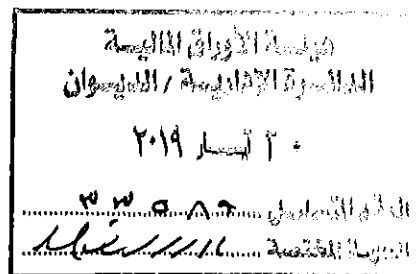 هيئـة الأوراق الماليـة
الدائـــرة الإداريـــة / الديـــوان
٢٠ أيـــار ٢٠١٩
الرقم التسلسلي ٣٣٥٨٩
الجهـة المختصة